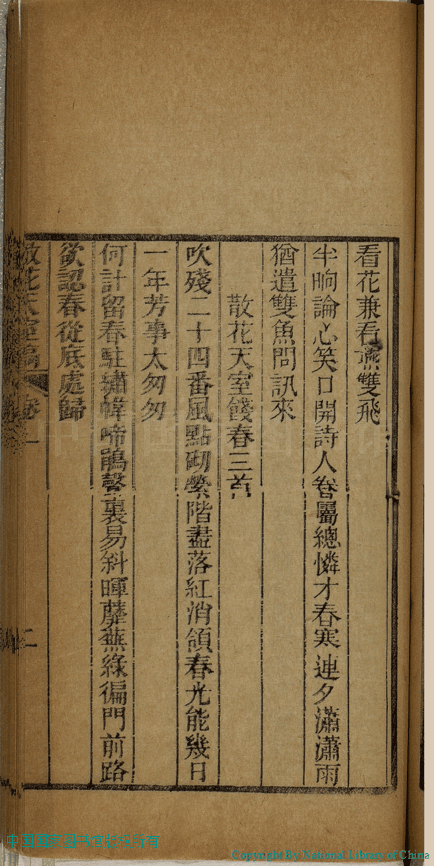 看花兼看燕雙飛
半晌論心笑口開詩人眷屬總憐才春寒連夕瀟瀟雨
猶遣雙魚問訊來
散花天室餞春三首
吹殘二十四番風點砌縈階盡落紅消領春光能幾日
一年芳事太匆匆
何計留春駐繡幃啼鵑聲裏易斜暉蘼蕪綠徧門前路
欲認春從底處歸
散花天室稿 卷一
二
Copyright By National Library of China